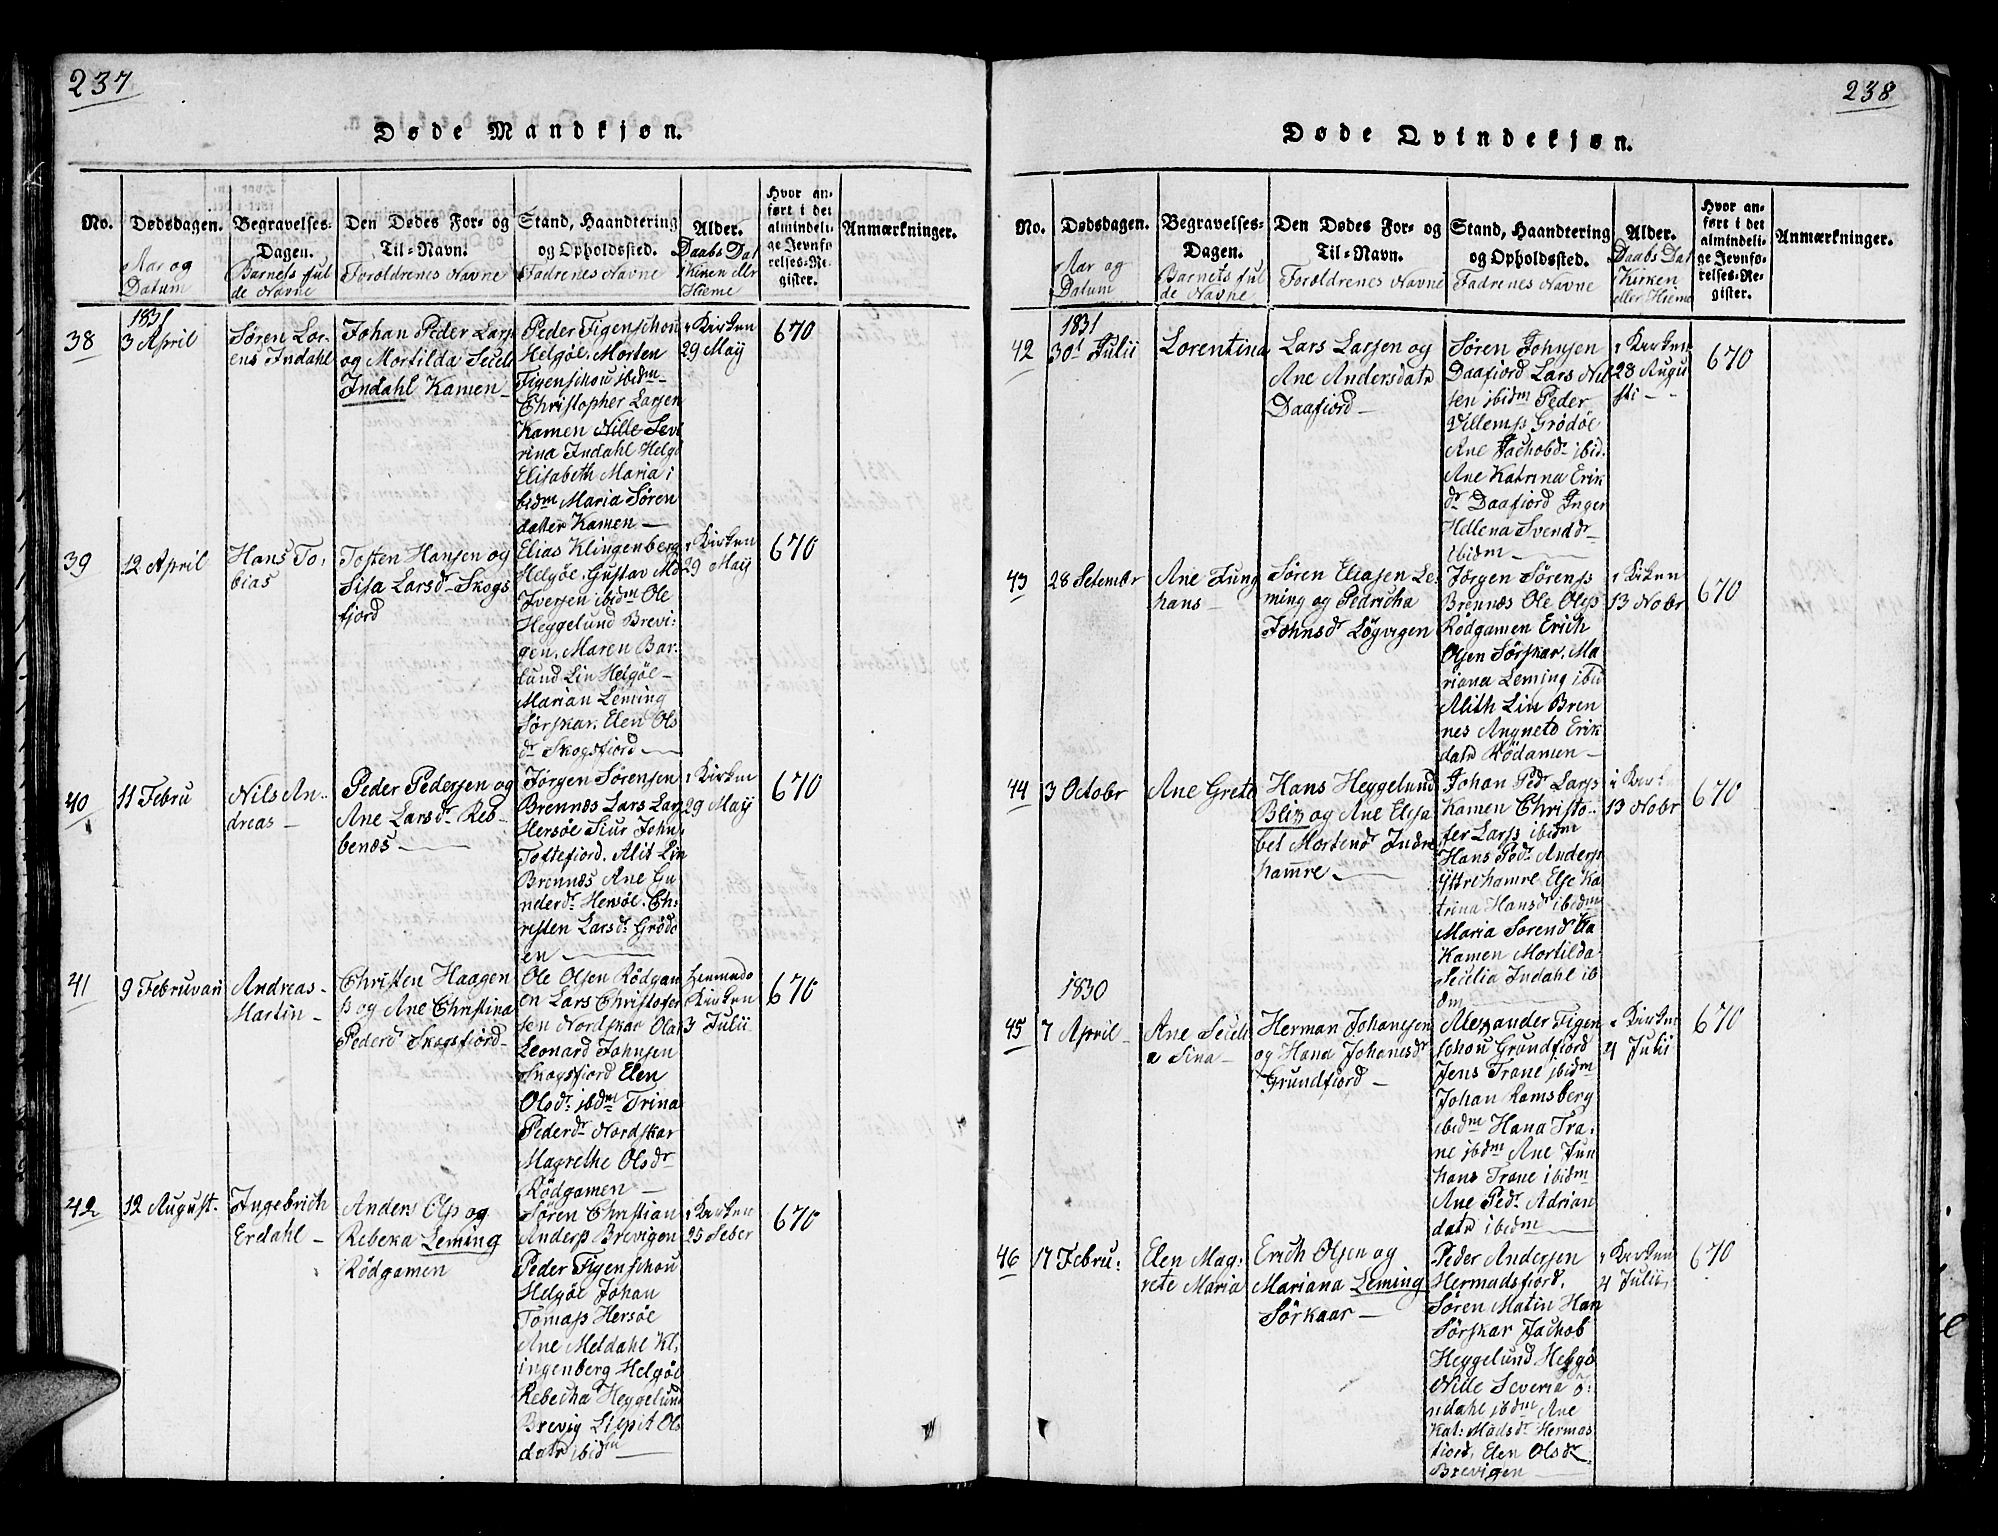 237
Døde Mandkjøn.
No.
Dødsdagen.
Aar og
Datum
Begravelses-
Dagen.
Barnets ful
de Navne
Den Dødes For- og
Til-Navn.
Foroldrenes Navne
Stand, Haandtering
og Opholdssted.
Fadrenes Navne
Alder.
Daabs Dat
i Kirken eller
Hieme
Hvor an-
ført i det
almindeli-
ge Jevnfø-
relses-Re-
gister.
Anmærkninger.
38
1831
3 April
Søren Lor-
ens Indahl
Johan Peder Larss
og Mortilda Seide
Indahl Kamen-
Peder Figenschou
Helgøe, Morten
Figenschou ibidm-
Christopher Larsen
Kamen Nille Seve
rina Indahl Helgø
Elisabeth Maria i
bidm Maria Søren
datter Kamen -
i Kirken
29 Maij
670
39
12 April
Hans To-
bias
Tosten Hansen og
Sisa Larsd- Skogs
fjord
Elias Klingenberg
Helgøe. Gustav Mo
Iversen ibidm Ole
Heggelund Brevi-
gen. Maren Bar-
lund Lin Helgøe-
Marian Leming
Sørskar. Elen Ols
dr Skogsfjord -
i Kirken
29 Maij
670
40
11 Febru
Nils An-
dreas -
Peder Pedersen og
Ane Larsdr Reb-
benæs -
Jørgen Sørensen
Brennæs Lars Lars
Hersøe Siur John-
Toftefiord. Alit Lin
Brennæs Ane Gu
nderdr Hersøe. Ch-
risten Larsdr Grødø
en -
i Kirken
29 Maij
670
41
9 Februvari
Andreas-
Martin-
Christen Haagen
s og Ane Christina
Pederd Skogsfjord-
Ole Olsen Rødgam
en Lars Christofer
sen Nordskar Olai
Leonard Johnsen
Skogsfiord Elen
Olsdr ibidm Trina
Pederdr Nordskar
Magrethe Olsdr-
Rødgamen -
Kirken
3 Julii
670
42
12 August-
Ingebrich
Erdahl -
Anders Olss og
Rebeka Leming
Rødgamen
Søren Christian
Anderss Brevigen
Peder Figenschou
Helgøe Johan
Tomass Hersøe
Ane Meldahl Kl-
ingenberg Helgøe
Rebecha Heggelund
Brevig Lispit Ols
datr ibidm -
i Kirken
25 Seber
670
238
Døde Qvindekjøn.
No.
Dødsdagen.
Aar og
Datum
Begravelses-
Dagen.
Barnets ful
de Navne
Den Dødes For- og
Til-Navn.
Foroldrenes Navne
Stand, Haandtering
og Opholdssted.
Fadrenes Navne
Alder.
Daabs Dat
Kirken
eller Hieme
Hvor an-
ført i det
almindeli-
ge Jevnfø-
relses-Re-
gister.
Anmærkninger.
42
1831
30t Julii
Lorentina
Lars Larsen og
Ane Andersdatr
Daafiord -
Søren Johnsen
Daafiord Lars Nil
sen ibidm Peder
Villemss Grødøe
Ane Jachobdr ibid.
Ane Katrina Erik
dr Daafiord Inger
Hellena Svenddr-
ibidm -
i Kirken
28 Augu
sti - -
670
43
28 Setember
Ane Jung
hans -
Søren Eliasen Le-
ming og Pedricha
Johnsdr Løgvigen
Jørgen Sørenss
Brennæs Ole Olss
Rødgamen Erich
Olsen Sørskar. Ma
riana Leming ibid
Alith Lin Bren
nes Angnete Erik
datr Rødamen -
i Kirken
13 Nobr
670
44
3 Octobr
Ane Grete
Hans Heggelund
Blix og Ane Elisa
bet Mortensd Indre
hamre -
Johan Pedr Larss
Kamen Christo-
fer Larss ibidm
Hans Pedr Anderss
Ytrehamre Else Ka
trina Hansdr ibidm
Maria Sørendr Ka
Kamen Mortilda-
Secilia Indahl ib
dm -
i Kirken
13 Nobr
670
1830
45
7 April -
Ane Secili
a Sina -
Herman Johansen
og Hana Johanesdr
Grundfiord -
Alexander Figen
schou Grundfiord
Jens Trane ibidm
Johan Ramsberg
ibidm Hana Tra-
ne ibidm Ane Jun
hans Trane ibidm
Ane Pedr Adrian
datr ibidm -
i Kirken
4 Julii
670
46
17 Febru:
Elen Mag-
rete Maria
Erich Olsen og
Mariana Leming
Sørkaar -
Peder Andersen
Hermadsfiord,
Søren Matin Han
Sørskar Jachob
Heggelund Helgø
Nille Severia I-
ndahl ibidm Ane
Kat: Madsdr Hermas
fiord, Elen Olsdr
Brevigen -
i Kirken
4 Julii,
670